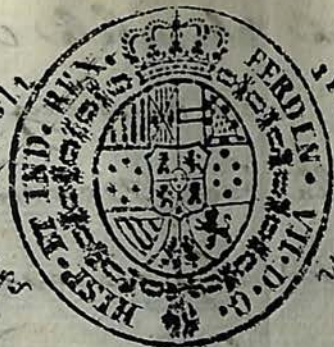 FERDIN · VII · D · G ·
HISP · ET IND · REX ·